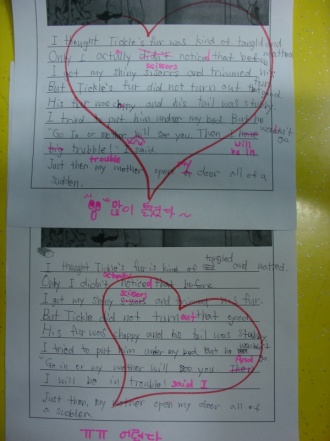 I thought Tickle's fur was kind of tangled
Only I actually didn't noticed that before
scissors
I got my shiny and trimmed his
But Tickle's fur did not turn out
His fur was choppy and his tail was
I tried to put him under my bed. But he
wouldn't
"Go in or mother will see you. Then I
will
be in
trubble!" I said.
trouble
Just then my mother my door all of a
sudden.
많이 틀렸다~
tangled
I thought Tickle's fur is kind of and matted.
Only I didn't noticed that before
scissors
I got my shiny and his fur.
But Tickle did not turn out that good
His fur was choppy and his tail was
I tried to put him under my bed. But he
wouldn't
"Go in or my mother will see you
And
I will be in trouble! said I
Just then, my mother open my door all of
a sudden.
ㅠㅠ 어렵다